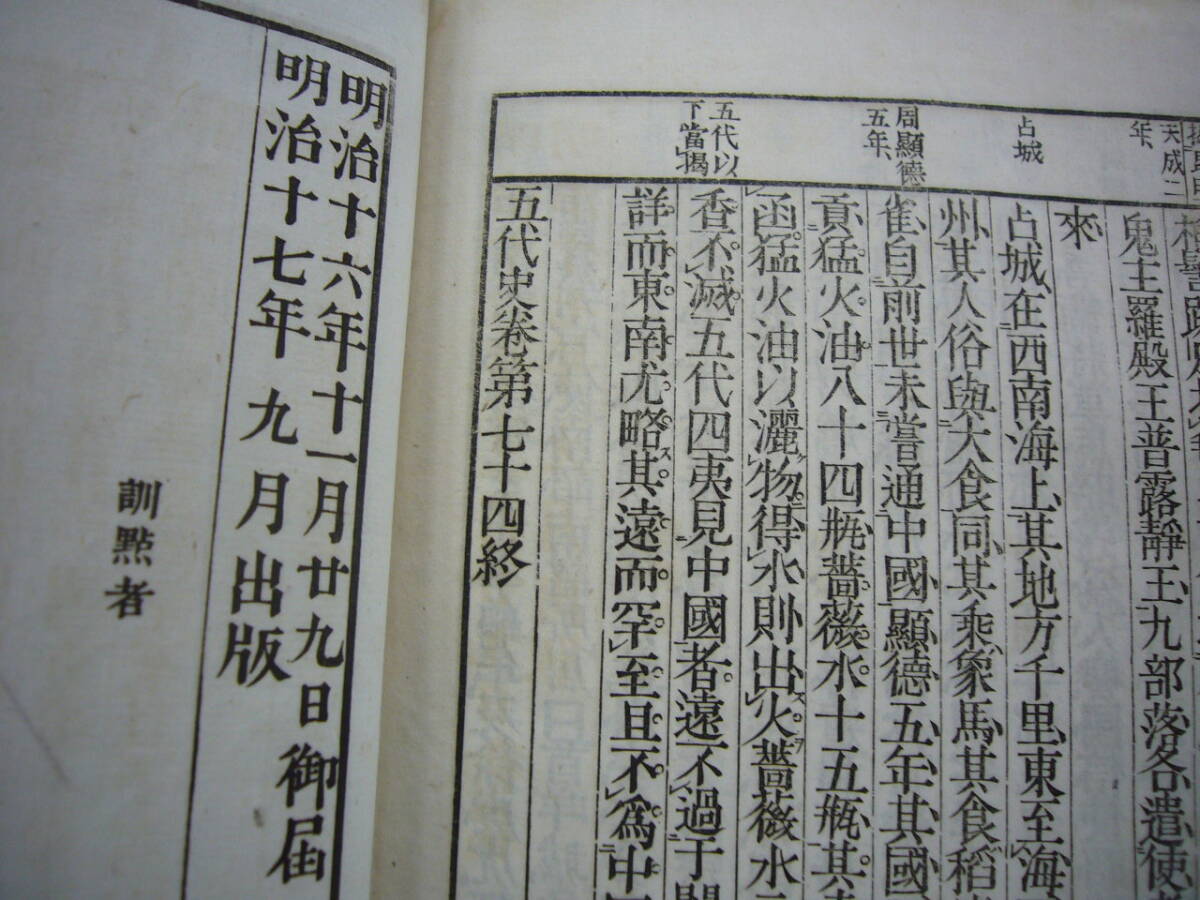 天成二
年、
占城
周顯德
五年、
五代以
下當揭
鬼主羅殿王普露靜王九部落各遣使
來
占城在西南海上其地方千里東至海
州其人俗與大食同其乘象馬其食稻
雀自前世未嘗通中國顯德五年其國
貢猛火油八十四瓶薔薇水十五瓶其
函猛火油以灑物得水則出火薔薇水
香不滅五代四夷見中國者遠不過于
詳而東南尤略其遠而罕至且不爲中
五代史卷第七十四終
明治十六年十一月廿九日御届
明治十七年九月出版
訓點者